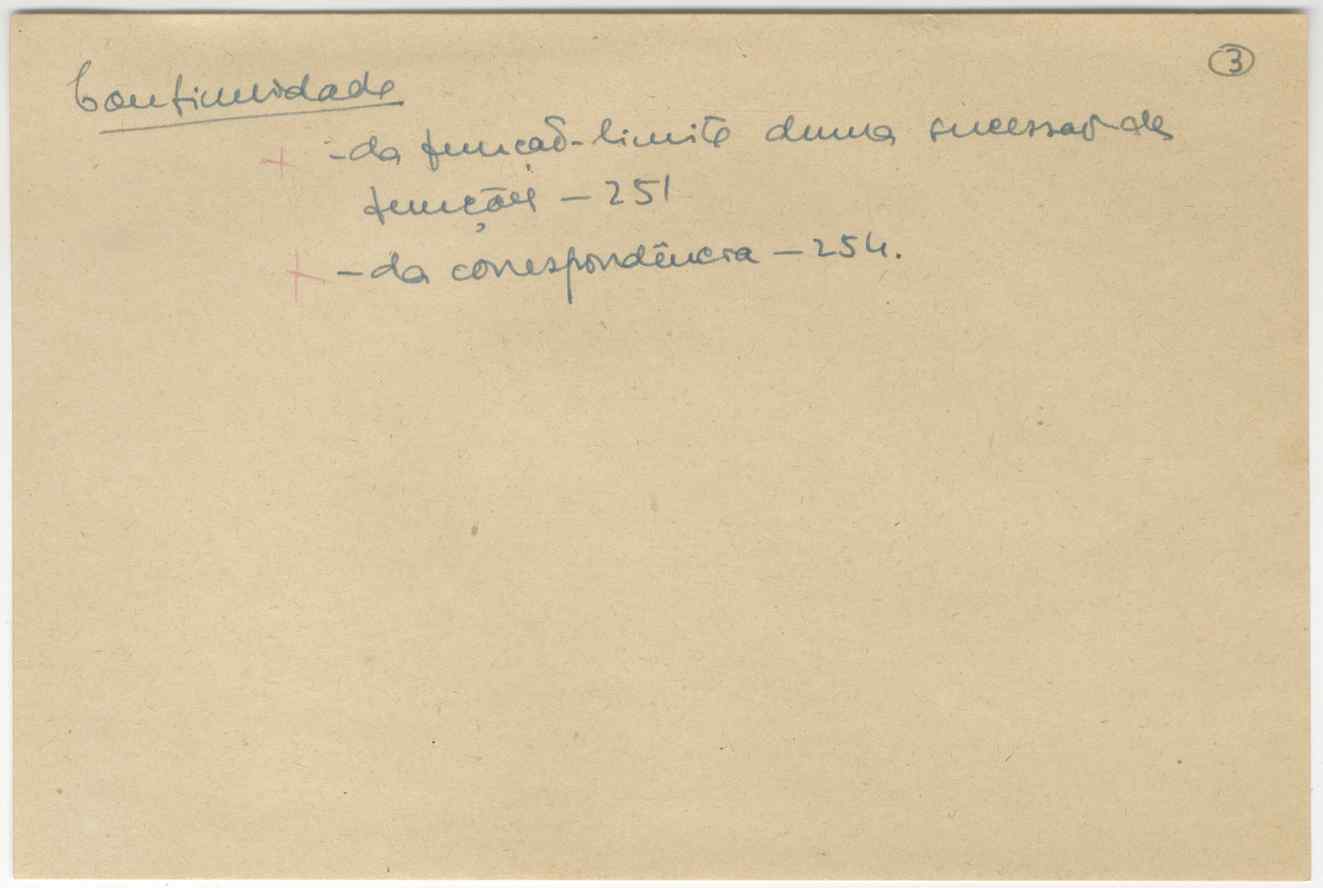 3
Continuidade
+ - da função-limite duma sucessão de
funções - 251
+ - da correspondência - 254.